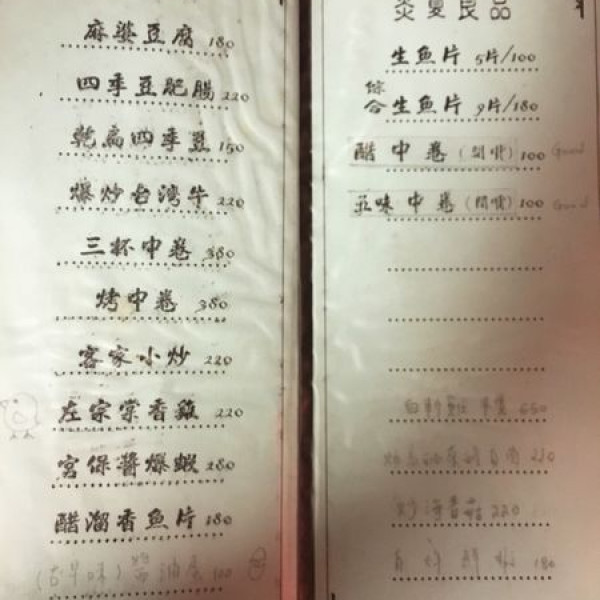 麻婆豆腐 180
四季豆肥腸 220
乾扁四季豆 150
爆炒台湾牛 220
三杯中卷 380
烤中卷 380
客家小炒 220
左宗棠香雞 220
宮保醬爆蝦 280
醋溜香魚片 180
(古早味) 100
炎夏良品
生魚片 5片/100
綜合生魚片 9片/180
醋中卷 100 Good
五味中卷 100 Good
白斬雞 650
220
炒海香菇 220
180